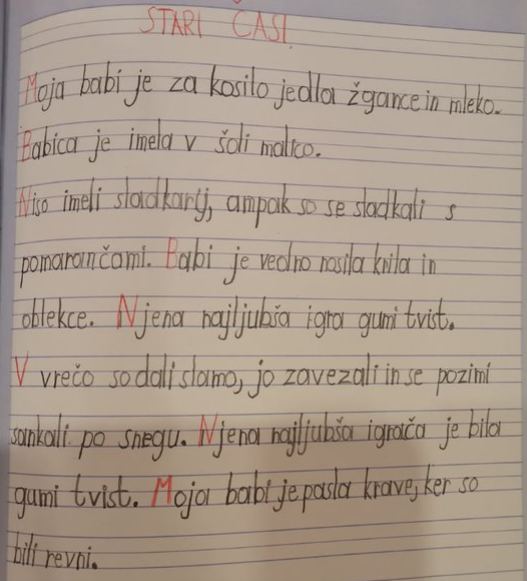 STARI ČASI
Moja babi je za kosilo jedla žgance in mleko.
Babica je imela v šoli malico.
Niso imeli sladkarij, ampak so se sladkali s
pomarančami. Babi je vedno nosila krila in
oblekce. Njena najljubša igra gumi tvist.
V vrečo so dali slamo, jo zavezali in se pozimi
sankali po snegu. Njena najljubša igrača je bila
gumi tvist. Moja babi je pasla krave, ker so
bili revni.